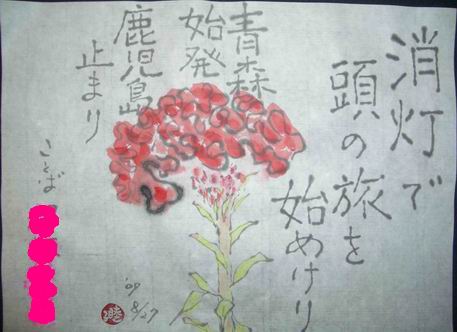 消灯で
頭の旅を
始めけり
青森
始発
鹿児島
止まり
ことば
'09
8/27